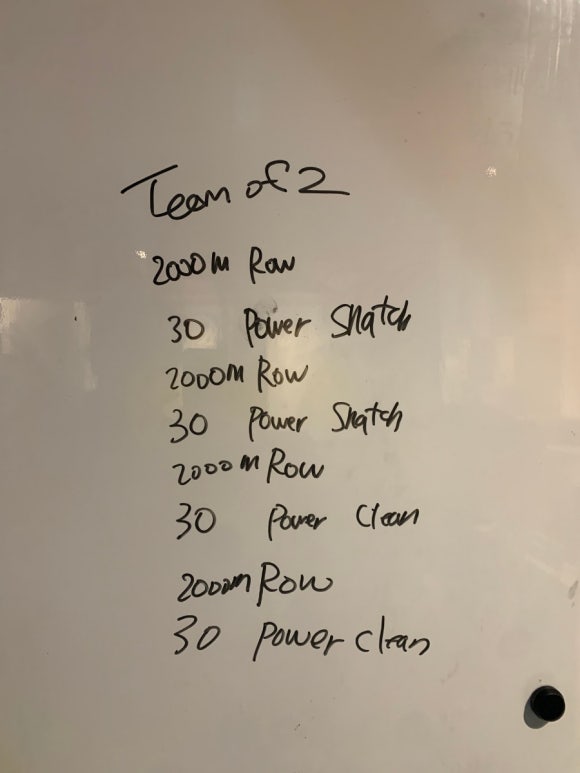 Team of 2
2000m Row
30 Power Snatch
2000m Row
30 Power Snatch
2000m Row
30 Power Clean
2000m Row
30 Power clean